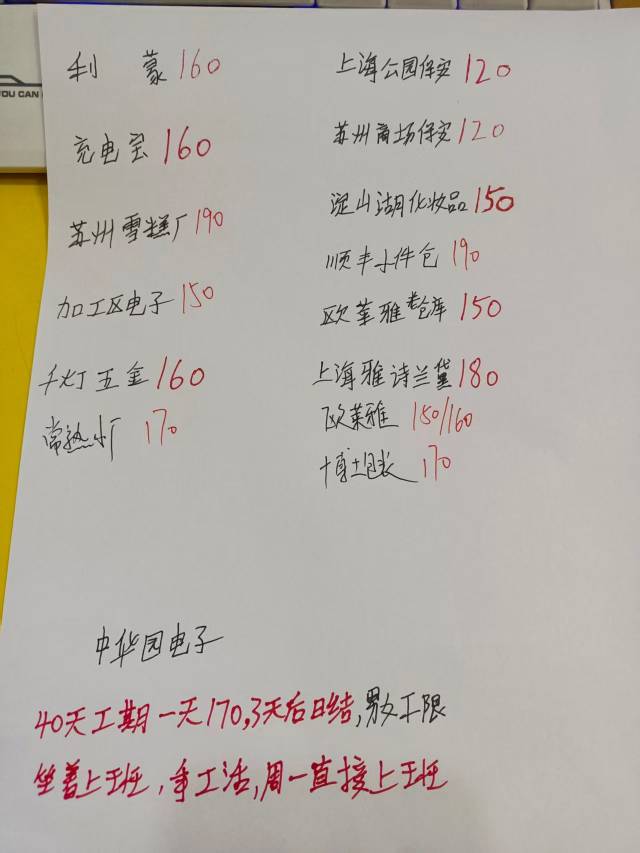 YOU CAN
利 蒙 160
充电宝 160
苏州雪糕厂 190
加工区电子 150
千灯五金 160
常熟小厂 170
上海公园保安 120
苏州商场保安 120
淀山湖化妆品 150
顺丰小件包 190
欧莱雅老仓库 150
上海雅诗兰黛 180
欧莱雅 150/160
博士包装 170
中华园电子
40天工期一天170,3天后日结,男女不限
坐着上班,手工活,周一直接上班